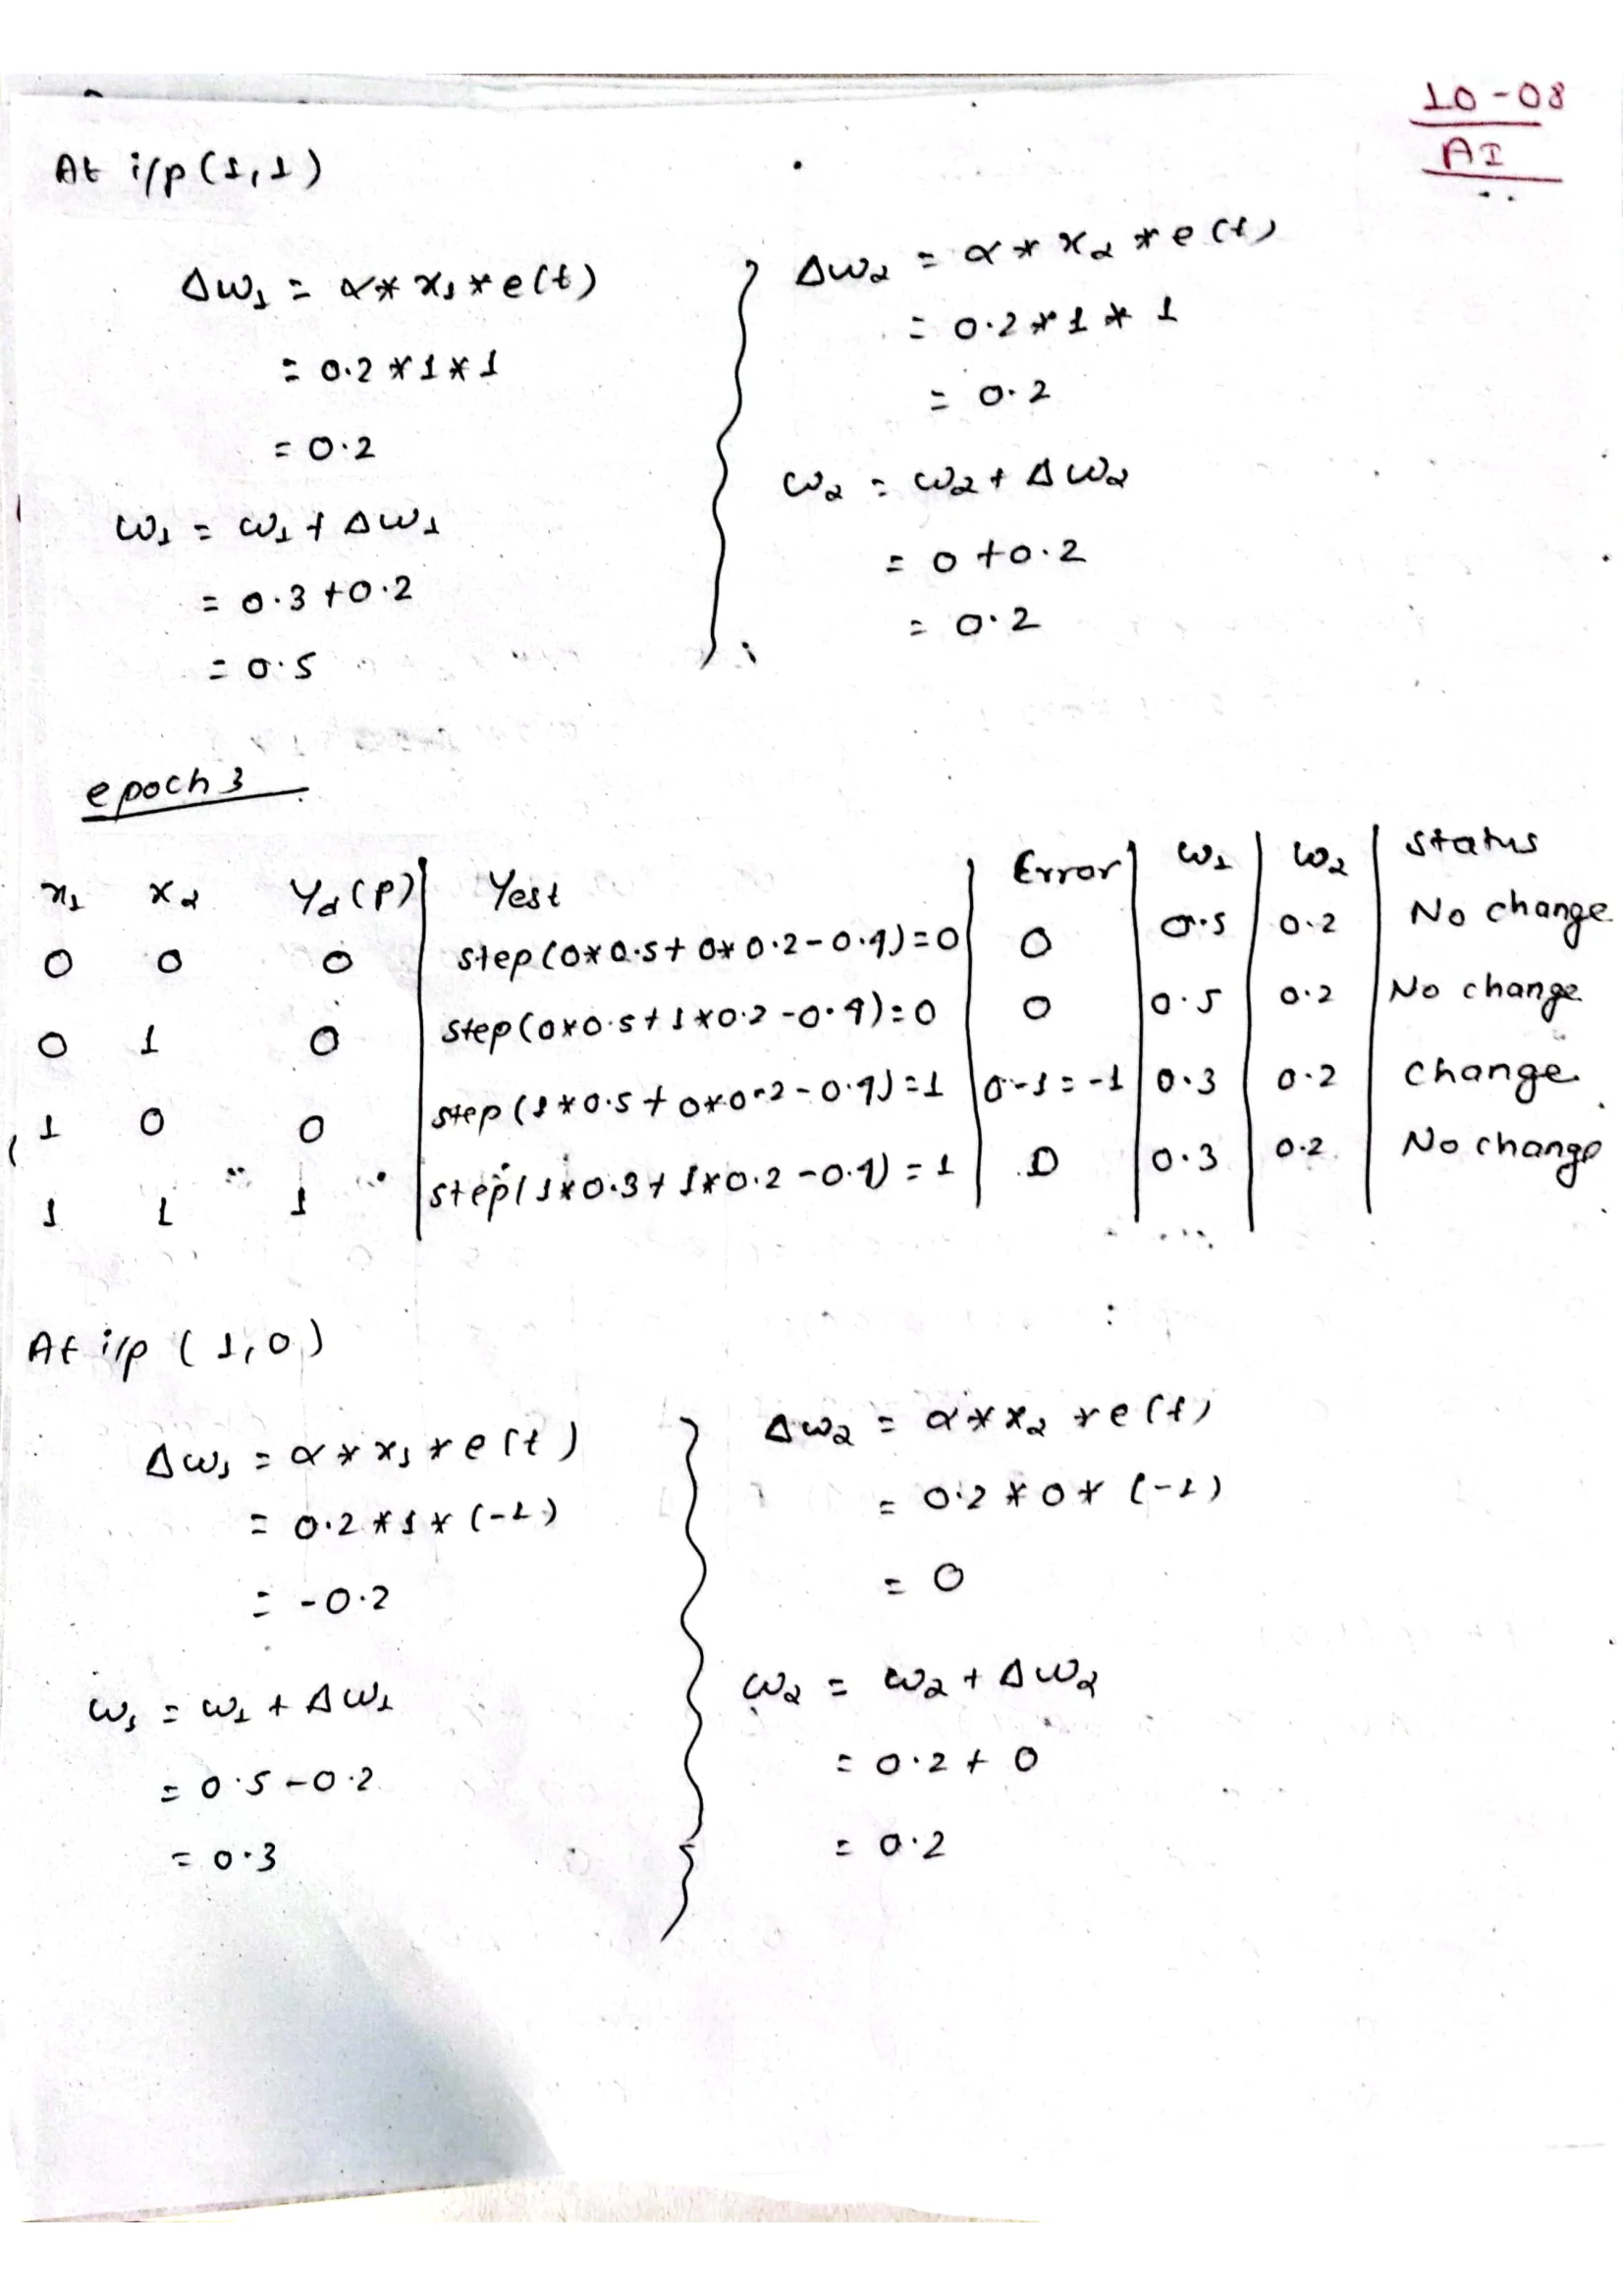 10-08
AI
At i/p (1,1)
Δw₁ = α * x₁ * e(t)
= 0.2 * 1 * 1
= 0.2
w₁ = w₁ + Δw₁
= 0.3 + 0.2
= 0.5
Δw₂ = α * x₂ * e(t)
= 0.2 * 1 * 1
= 0.2
w₂ = w₂ + Δw₂
= 0 + 0.2
= 0.2
epoch 3
x₁ x₂ Yd(P) Yest Error w₁ w₂ status
0 0 0 step(0*0.5+0*0.2-0.4)=0 0 0.5 0.2 No change
0 1 0 step(0*0.5+1*0.2-0.4)=0 0 0.5 0.2 No change
1 0 0 step(1*0.5+0*0.2-0.4)=1 0-1=-1 0.3 0.2 change
1 1 1 step(1*0.3+1*0.2-0.4)=1 0 0.3 0.2 No change
At i/p (1,0)
Δw₁ = α * x₁ * e(t)
= 0.2 * 1 * (-1)
= -0.2
w₁ = w₁ + Δw₁
= 0.5 - 0.2
= 0.3
Δw₂ = α * x₂ * e(t)
= 0.2 * 0 * (-1)
= 0
w₂ = w₂ + Δw₂
= 0.2 + 0
= 0.2